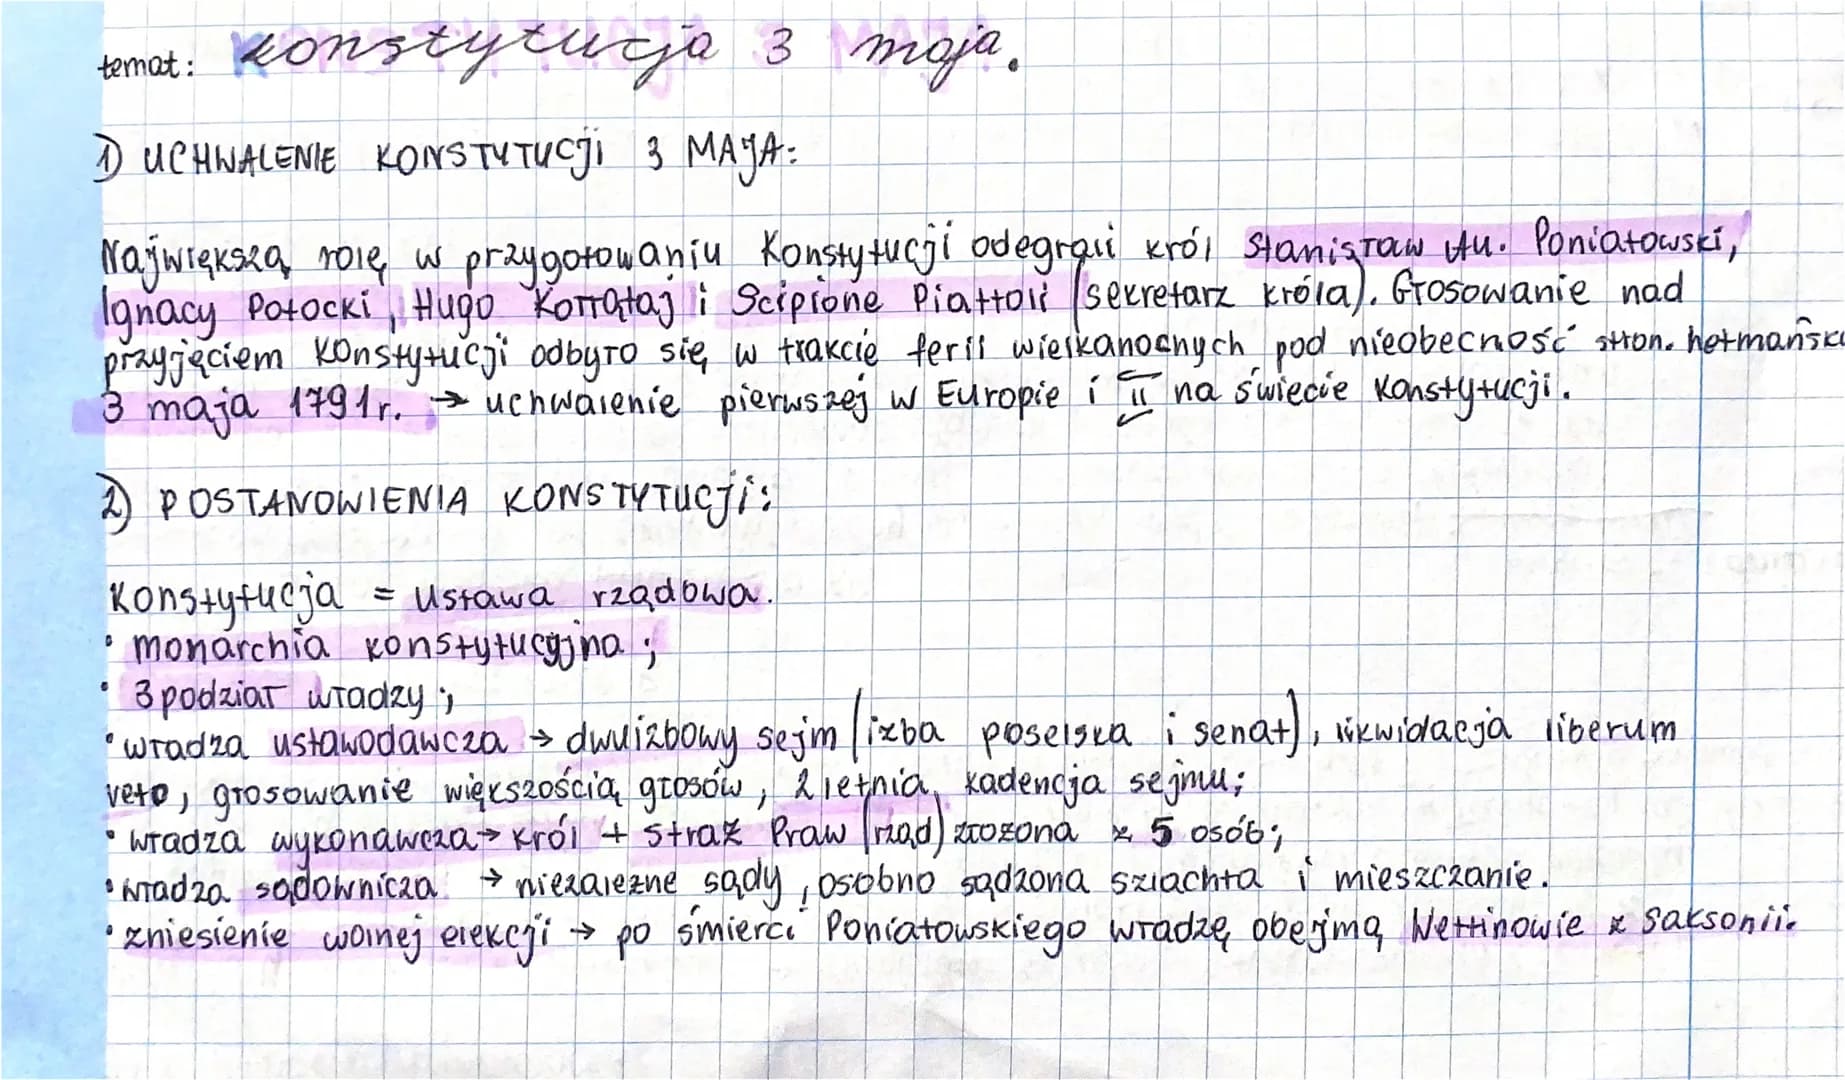 temat: konstytucja 3 maja.
1) UCHWALENIE KONSTYTUCJI 3 MAJA:
Największą rolę w przygotowaniu Konstytucji odegrali król Stanisław Au. Poniatowski,
Ignacy Potocki, Hugo Kołłątaj i Scipione Piattoli (sekretarz króla). Głosowanie nad
przyjęciem Konstytucji odbyło się w trakcie ferii wielkanocnych pod nieobecność stron. hetmańsk
3 maja 1791r. → uchwalenie pierwszej w Europie i II na świecie Konstytucji.
2) POSTANOWIENIA KONSTYTUCJI:
Konstytucja = Ustawa rządowa.
• monarchia konstytucyjna;
• 3podział władzy;
• władza ustawodawcza → dwuizbowy sejm (izba poselska i senat), likwidacja liberum
veto, głosowanie większością głosów, 2 letnia kadencja sejmu;
• władza wykonawcza → król + Straż Praw (rząd) złożona z 5 osób;
• władza sądownicza → niezależne sądy, osobno sądzona szlachta i mieszczanie.
• zniesienie wolnej elekcji → po śmierci Poniatowskiego władzę obejmą Wettinowie z Saksonii.